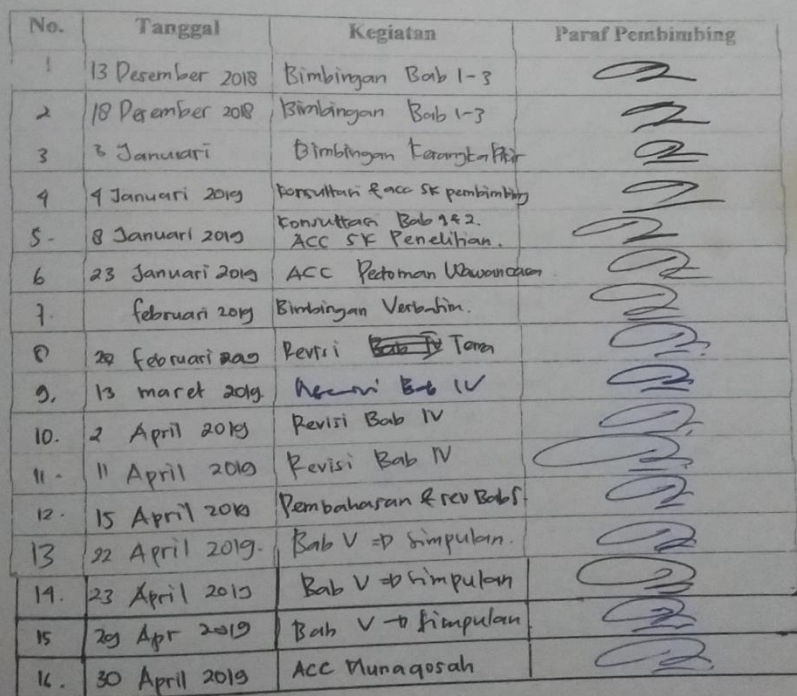 No. Tanggal Kegiatan Paraf Pembimbing
1 13 Desember 2018 Bimbingan Bab 1-3
2 18 Desember 2018 Bimbingan Bab 1-3
3 3 Januari Bimbingan Kerangka Pikir
4 4 Januari 2019 Konsultasi & acc SK pembimbing
5. 8 Januari 2019 Konsultasi Bab 1&2.
ACC SK Penelitian.
6 23 Januari 2019 ACC Pedoman Wawancara
7. februari 2019 Bimbingan Verbatim.
8 20 februari 2019 Revisi Tema
9. 13 maret 2019. Bab IV
10. 2 April 2019 Revisi Bab IV
11. 11 April 2019 Revisi Bab IV
12. 15 April 2019 Pembahasan & rev Bab 5
13 22 April 2019. Bab V => Simpulan.
14. 23 April 2019 Bab V => Simpulan
15 29 Apr 2019 Bab V → Simpulan
16. 30 April 2019 ACC Munaqosah